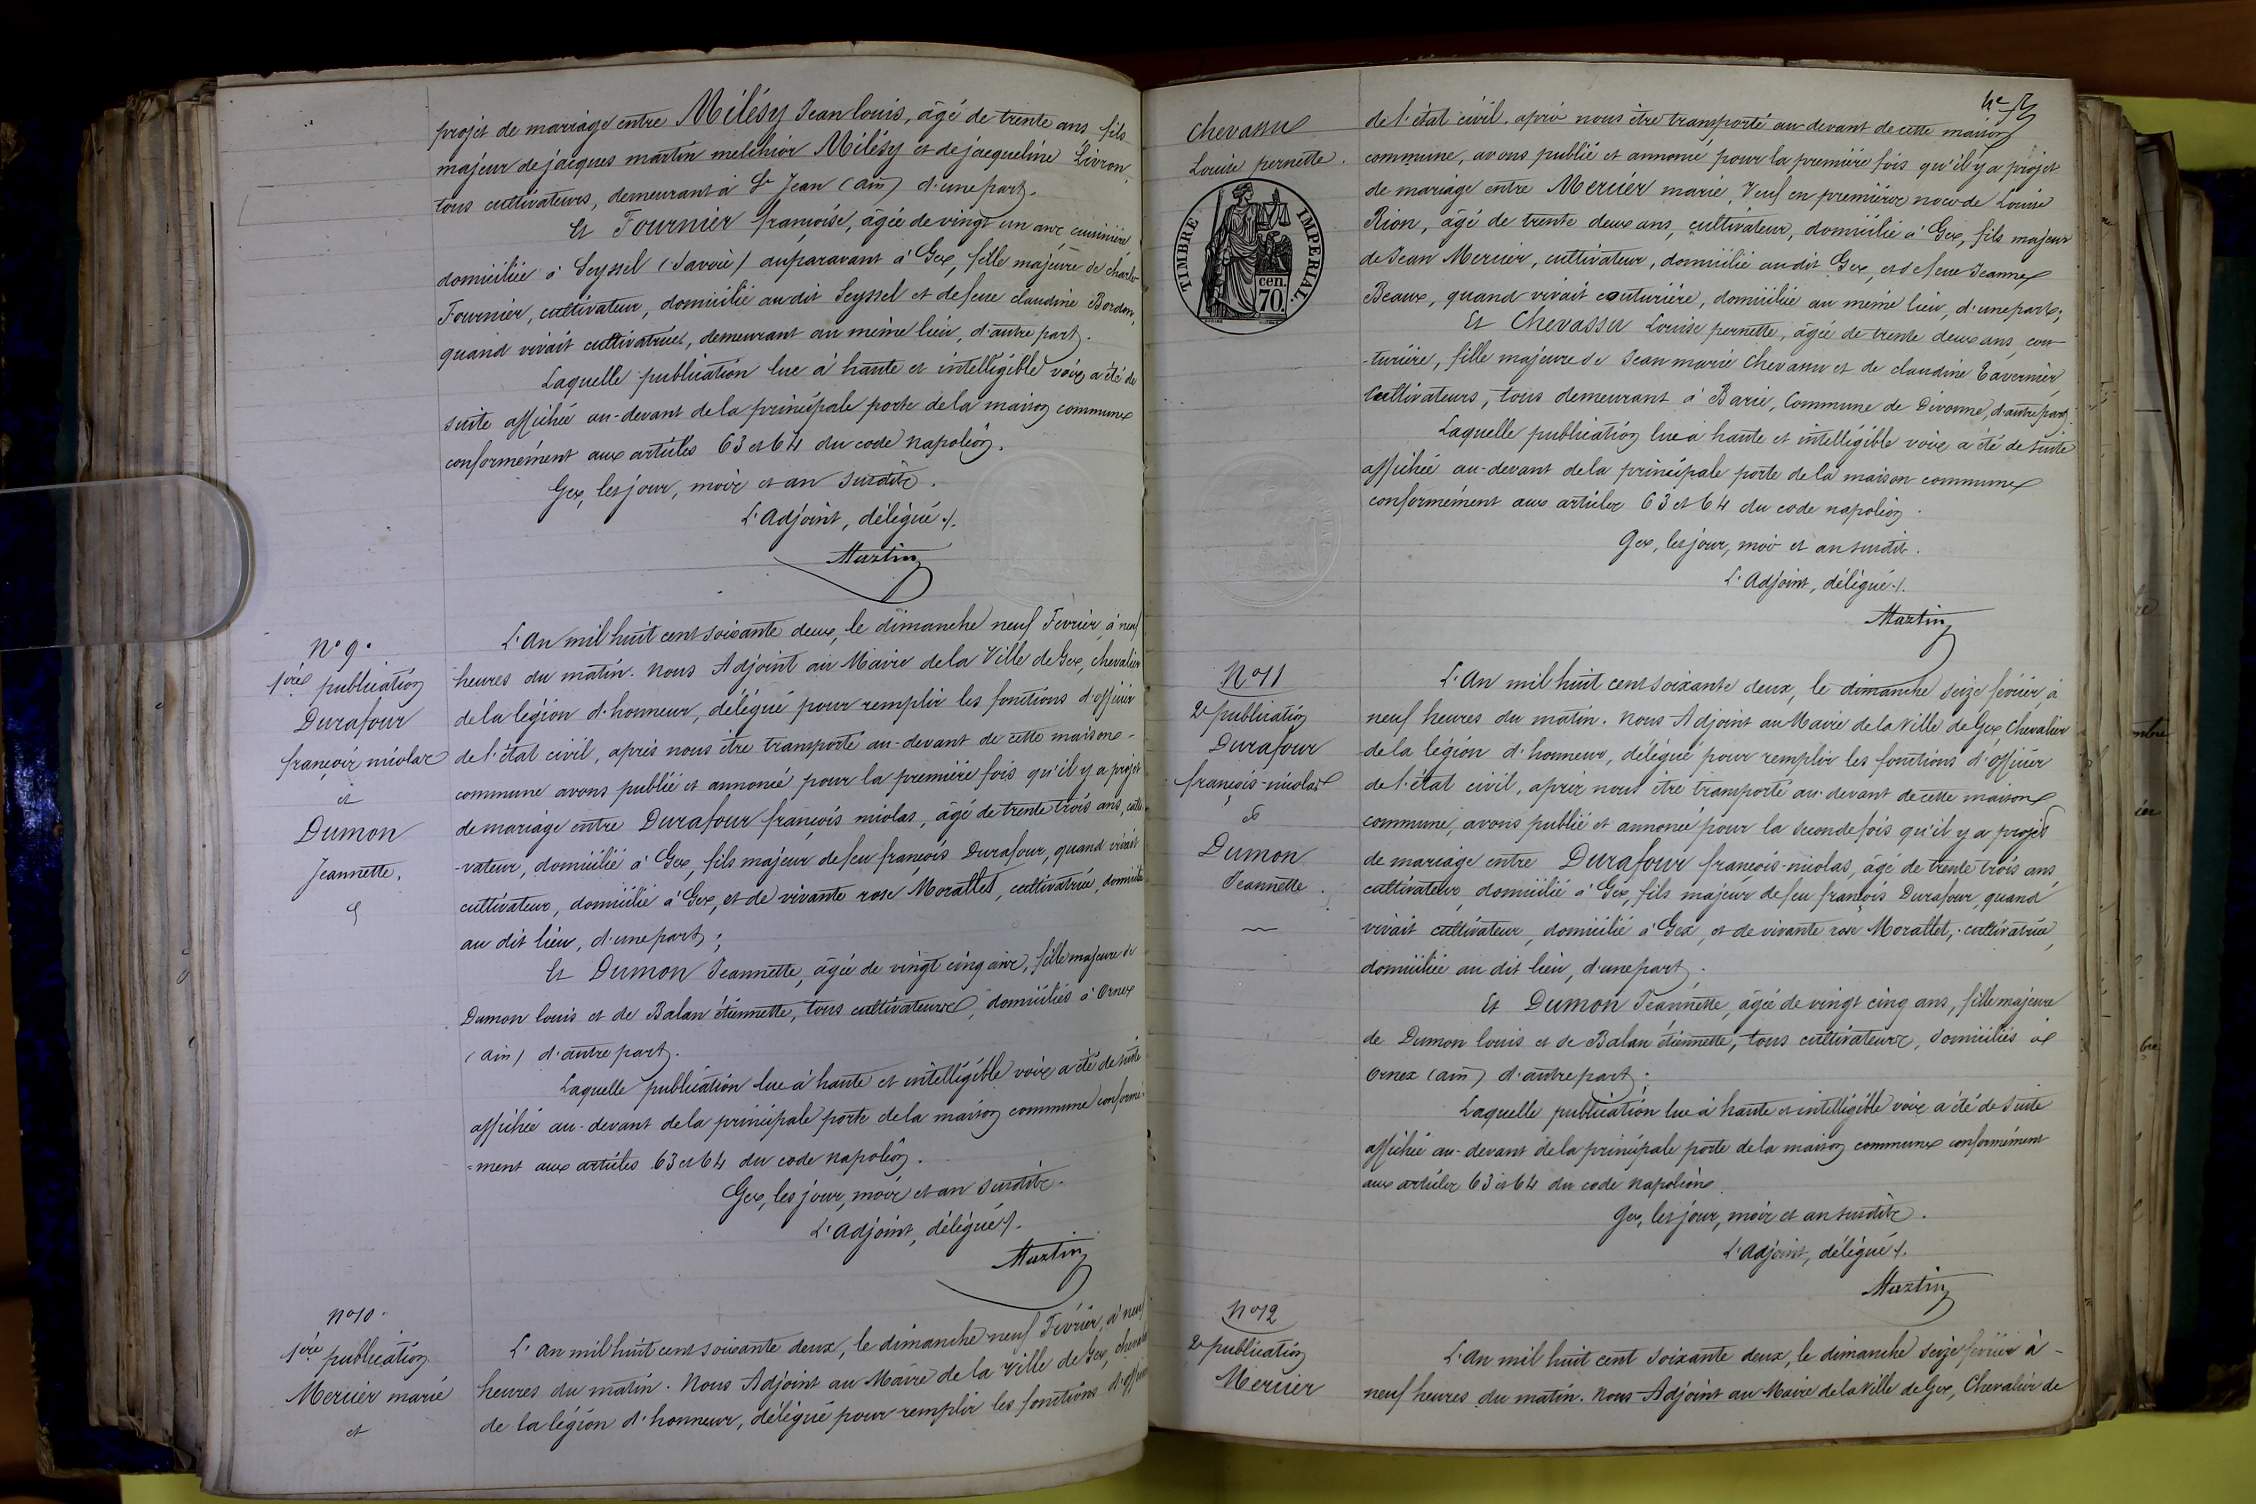 projet de mariage entre Milésy Jean louis, âgé de trente ans fils
majeur de jacques martin melchior Milésy et de jacqueline Livron,
tous cultivateurs, demeurant à St Jean (ain) d'une part.
Et Fournier françoise, âgée de vingt un ans cuisinière,
domiciliée à Seyssel (Savoie) auparavant à Gex, fille majeure de charles
Fournier, cultivateur, domicilié au dit Seyssel et de feue claudine Bordon,
quand vivait cultivatrice, demeurant au même lieu, d'autre part.
Laquelle publication lue à haute et intelligible voix, a été de
suite affichée au-devant de la principale porte de la maison commune
conformément aux articles 63 et 64 du code napoléon.
Gex, les jour, mois et an susdits.
L'Adjoint, délégué./.
Martin
N° 9.
1ère publication
Durafour
françois nicolas
et
Dumon
Jeannette.
L'An mil huit cent soixante deux, le dimanche neuf Février, à neuf
heures du matin. Nous Adjoint au Maire de la Ville de Gex, chevalier
de la légion d'honneur, délégué pour remplir les fonctions d'officier
de l'état civil, après nous être transporté au-devant de cette maison
commune avons publié et annoncé pour la première fois qu'il y a projet
de mariage entre Durafour françois nicolas, âgé de trente trois ans, culti
-vateur, domicilié à Gex, fils majeur de feu françois Durafour, quand vivait
cultivateur, domicilié à Gex, et de vivante rose Morallet, cultivatrice, domiciliée
au dit lieu, d'une part;
Et Dumon Jeannette, âgée de vingt cinq ans, fille majeure de
Dumon louis et de Balan étiennette, tous cultivateurs, domiciliés à Ornex
(ain) d'autre part.
Laquelle publication lue à haute et intelligible voix a été de suite
affichée au-devant de la principale porte de la maison commune conformé-
=ment aux articles 63 et 64 du code napoléon.
Gex, les jour, mois et an susdits.
L'Adjoint, délégué./.
Martin
N° 10.
1ère publication
Mercier marie
et
L'an mil huit cent soixante deux, le dimanche neuf Février, à neuf
heures du matin. Nous Adjoint au Maire de la Ville de Gex, chevalier
de la légion d'honneur, délégué pour remplir les fonctions d'officier
Chevassu
Louise pernette.
TIMBRE IMPERIAL.
cen.
70.
de l'état civil, après nous être transporté au-devant de cette maison
commune, avons publié et annoncé pour la première fois qu'il y a projet
de mariage entre Mercier marie, Veuf en premières noces de Louise
Rion, âgé de trente deux ans, cultivateur, domicilié à Gex, fils majeur
de Jean Mercier, cultivateur, domicilié au dit Gex, et de feue Jeanne
Beaux, quand vivait couturière, domiciliée au même lieu, d'une part;
Et Chevassu Louise pernette, âgée de trente deux ans, cou-
-turière, fille majeure de Jean marie Chevassu et de claudine Tavernier
Cultivateurs, tous demeurant à Barie, Commune de Divonne, d'autre part.
Laquelle publication lue à haute et intelligible voix a été de suite
affichée au-devant de la principale porte de la maison commune
conformément aux articles 63 et 64 du code napoléon.
Gex, les jour, mois et an susdits.
L'Adjoint, délégué./.
Martin
N° 11
2e publication
Durafour
françois-nicolas
&
Dumon
Jeannette.
L'An mil huit cent soixante deux, le dimanche seize février, à
neuf heures du matin. Nous Adjoint au Maire de la Ville de Gex, Chevalier
de la légion d'honneur, délégué pour remplir les fonctions d'officier
de l'état civil, après nous être transporté au-devant de cette maison
commune, avons publié et annoncé pour la seconde fois qu'il y a projet
de mariage entre Durafour françois-nicolas, âgé de trente trois ans,
cultivateur, domicilié à Gex, fils majeur de feu françois Durafour, quand
vivait cultivateur, domicilié à Gex, et de vivante rose Morallet, cultivatrice,
domiciliée au dit lieu, d'une part.
Et Dumon Jeannette, âgée de vingt cinq ans, fille majeure
de Dumon louis et de Balan étiennette, tous cultivateurs, domiciliés à
Ornex (ain) d'autre part;
Laquelle publication lue à haute et intelligible voix a été de suite
affichée au-devant de la principale porte de la maison commune conformément
aux articles 63 et 64 du code napoléon.
Gex, les jour, mois et an susdits.
L'Adjoint, délégué./.
Martin
N° 12
2e publication
Mercier
L'An mil huit cent soixante deux, le dimanche seize février à
neuf heures du matin. Nous Adjoint au Maire de la Ville de Gex, Chevalier de